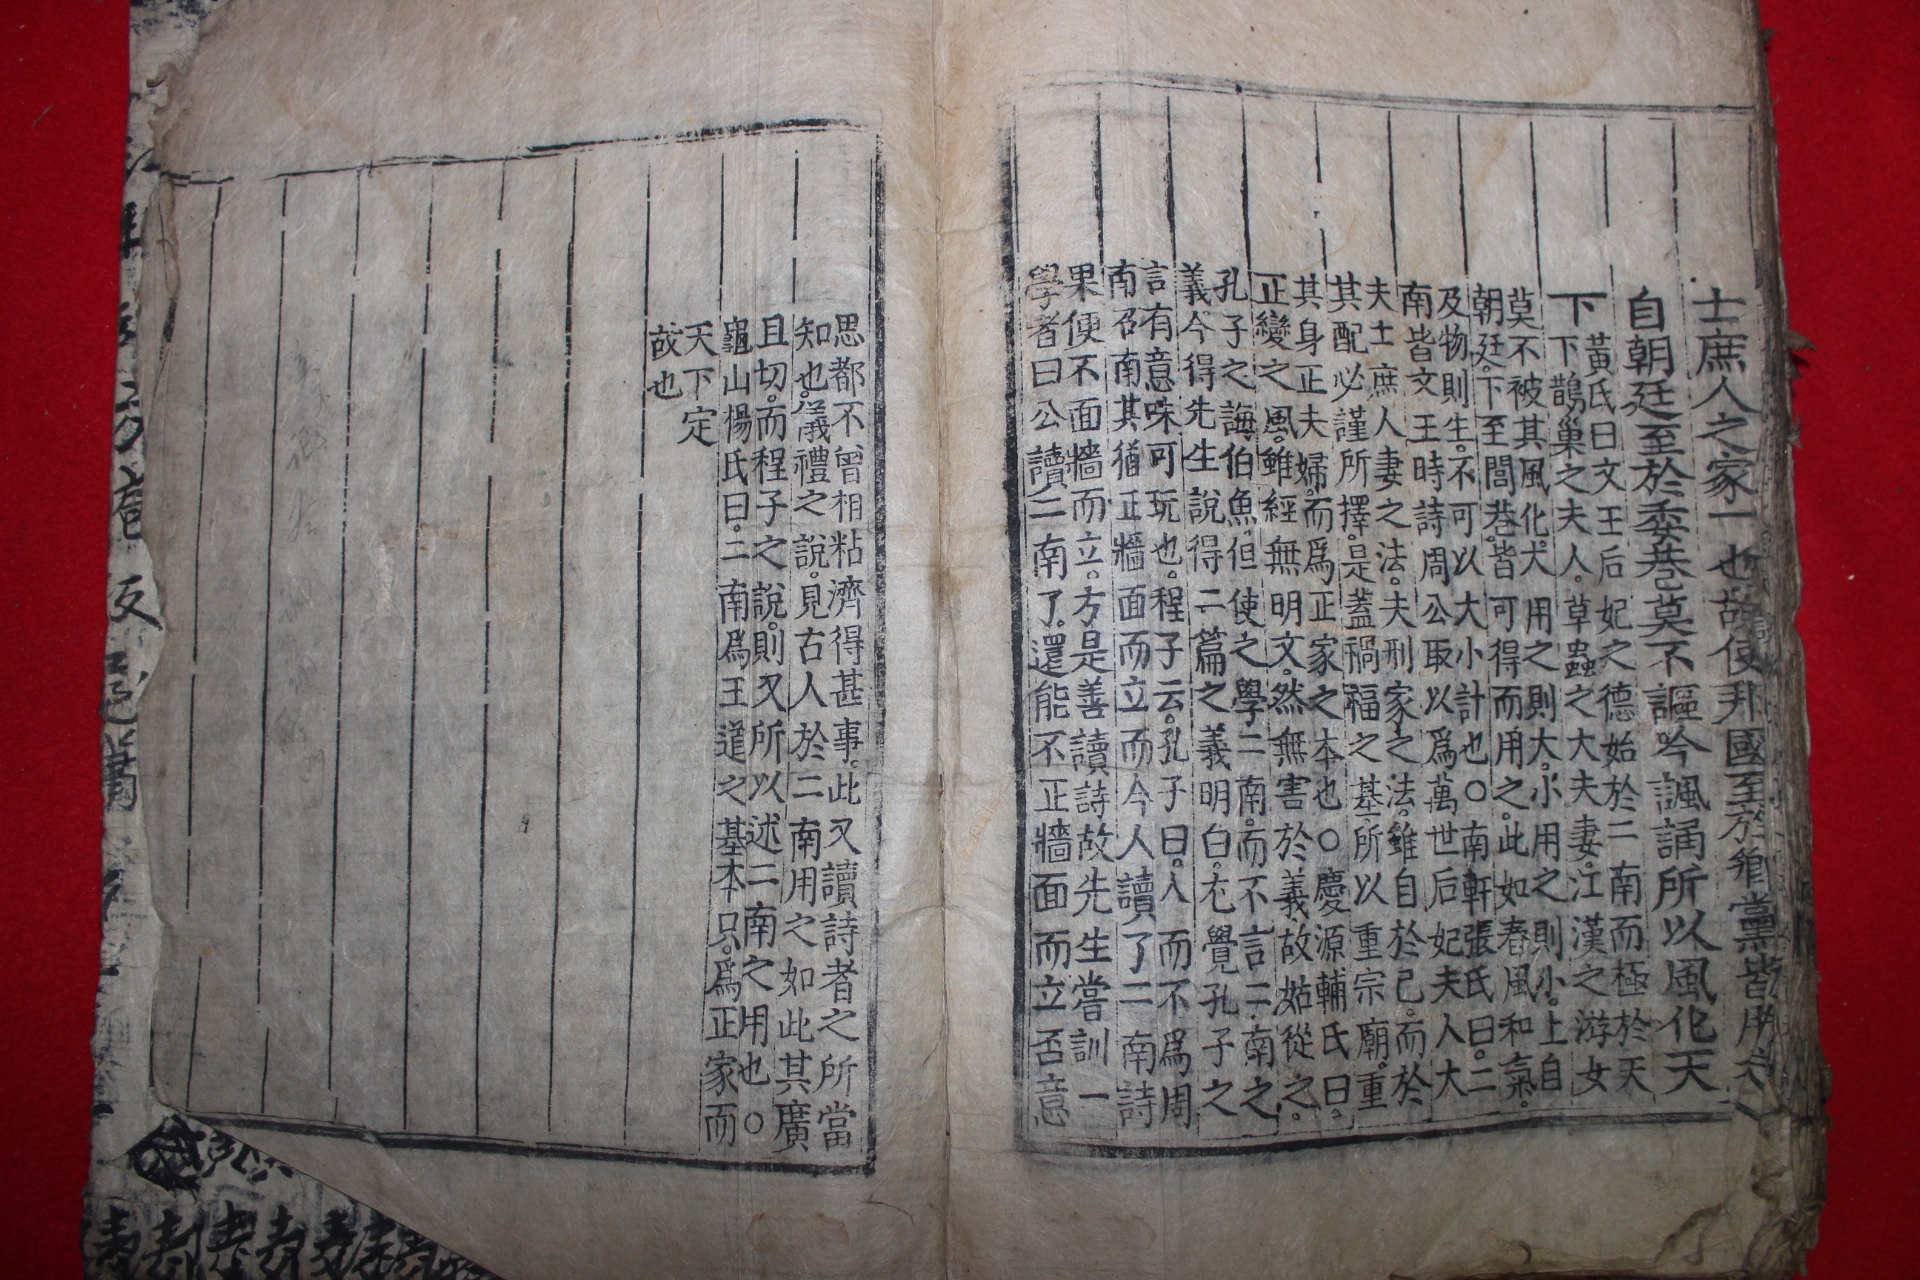 士庶人之家一也故使邦國至於鄕黨皆用之
自朝廷至於委巷莫不謳吟諷誦所以風化天
下
黃氏曰文王后妃之德始於二南而極於天
下鵲巢之夫人。草蟲之大夫妻。江漢之游女
莫不被其風化。大用之則大。小用之則小。上自
朝廷。下至閭巷。皆可得而用之。此如春風和氣。
及物則生。不可以大小計也○南軒張氏曰。二
南皆文王時詩周公取以爲萬世后妃夫人大
夫士庶人妻之法。夫刑家之法。雖自於己。而於
其配必謹所擇。是蓋禍福之基所以重宗廟。重
其身正夫婦。而爲正家之本也○慶源輔氏曰。
正變之風。雖經無明文。然無害於義故姑從之。
孔子之誨伯魚。但使之學二南。而不言二南之
義。今得先生說得二篇之義明白。尤覺孔子之
言有意味可玩也。程子云。孔子曰。人而不爲周
南召南其猶正牆面而立而今人讀了二南詩
果便不面牆而立。方是善讀詩故先生嘗訓一
學者曰公讀二南了。還能不正牆面而立否意
思都不曾相粘濟得甚事。此又讀詩者之所當
知也。儀禮之說。見古人於二南用之如此其廣
且切。而程子之說。則又所以述二南之用也。○
龜山楊氏曰。二南爲王道之基本。只爲正家而
天下定
故也